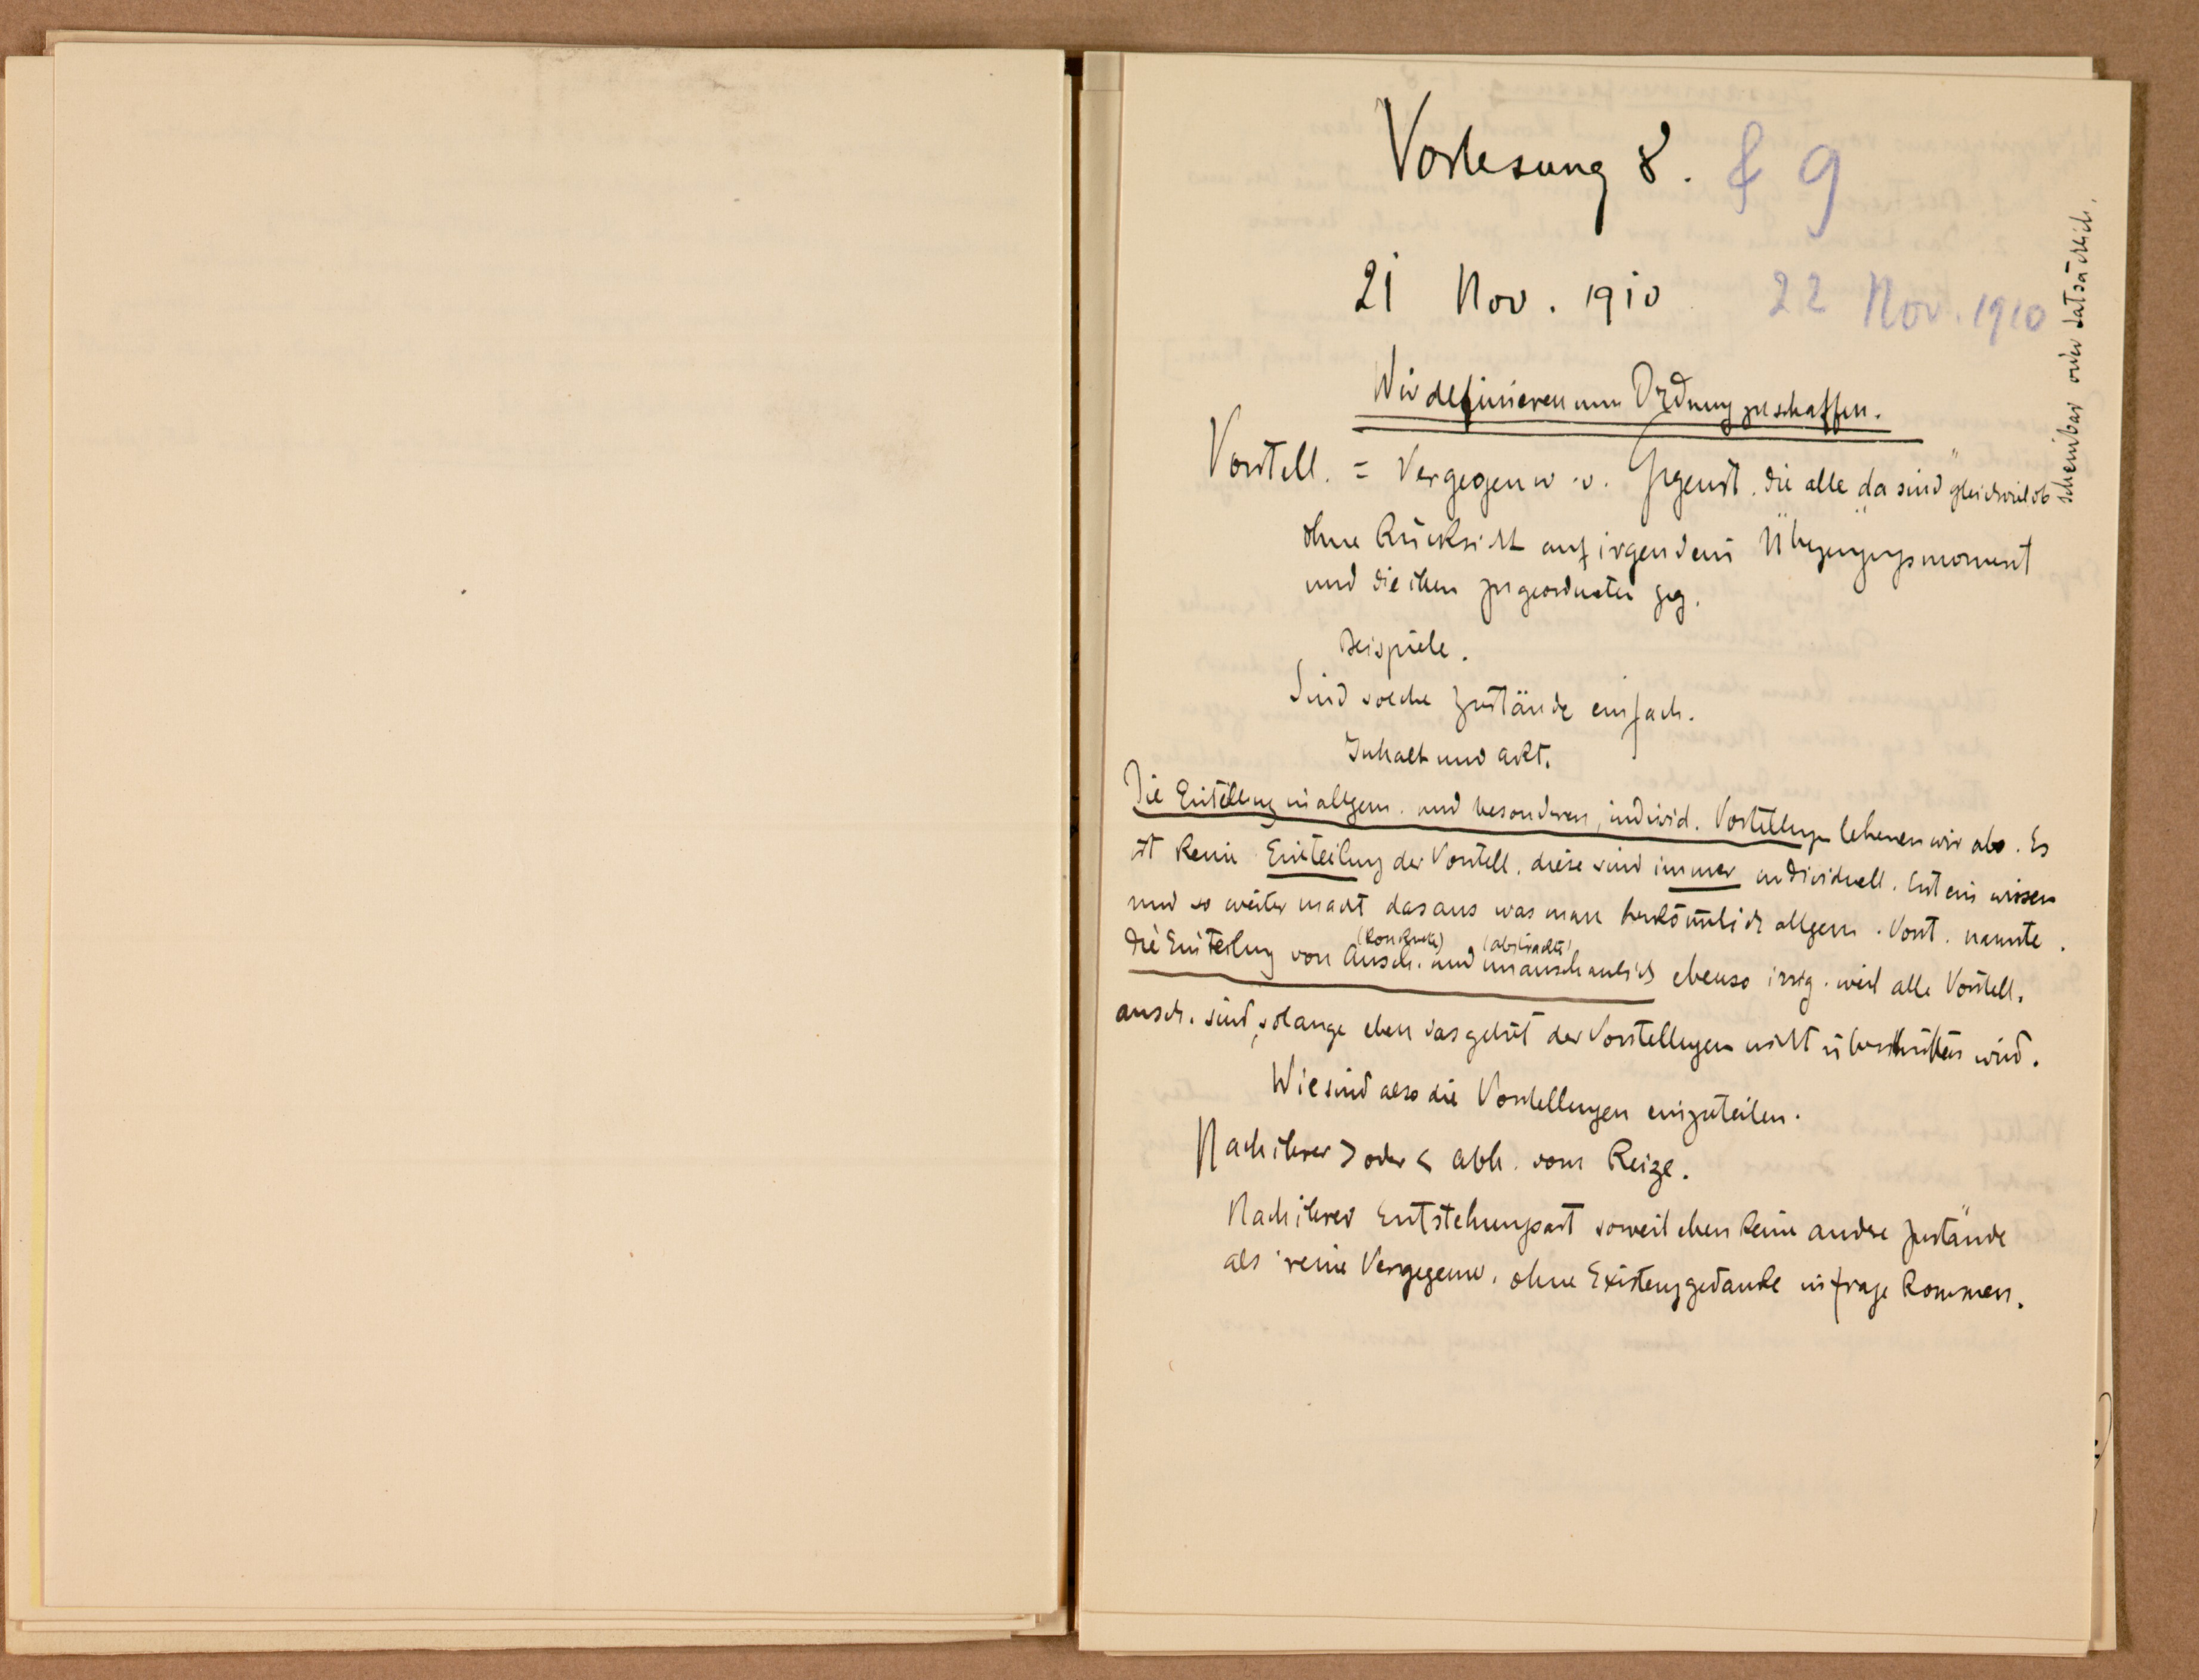 Vorlesung 8. & 9
21 Nov. 1910 22 Nov. 1910
Wir definieren um Ordnung zu schaffen.
Vorstell. = Vergegenw. v. Gegenst. die alle "da sind" gleichviel ob
scheinbar oder tatsächlich.
ohne Rücksicht auf irgendein Überzeugungsmoment
und die ihm zugeordneten geg.
Beispiele.
Sind solche Zustände einfach.
Inhalt und akt.
Die Einteilung in allgem. und besonderen, individ. Vorstellungen lehnen wir ab. Es
ist keine Einteilung der Vorstell. diese sind immer individuell. Erst ein wissen
und so weiter macht daraus was man herkömmlich allgem. Vorst. nannte.
(konkrete) (abstrakte)
Die Einteilung von Ansch. und unanschaulich ebenso irrig. weil alle Vorstell.
ansch. sind, solange eben das gebiet der Vorstellungen nicht überschritten wird.
Wie sind also die Vorstellungen einzuteilen.
Nach ihrer > oder < abh. vom Reize.
Nach ihrer Entstehungsart soweit eben keine andre Zustände
als reine Vergegenw. ohne Existenzgedanke in frage kommen.